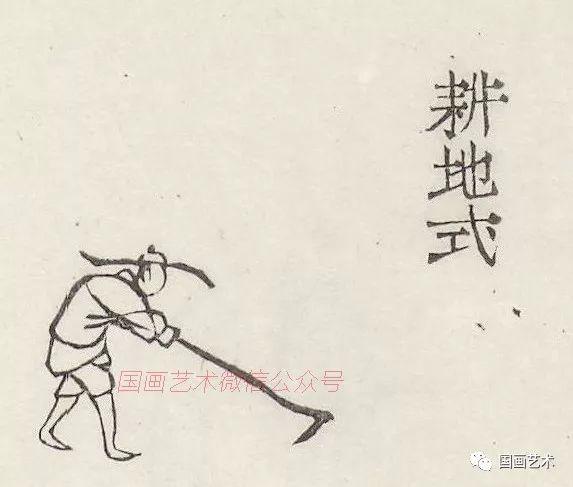 耕地式
国画艺术微信公众号
国画艺术